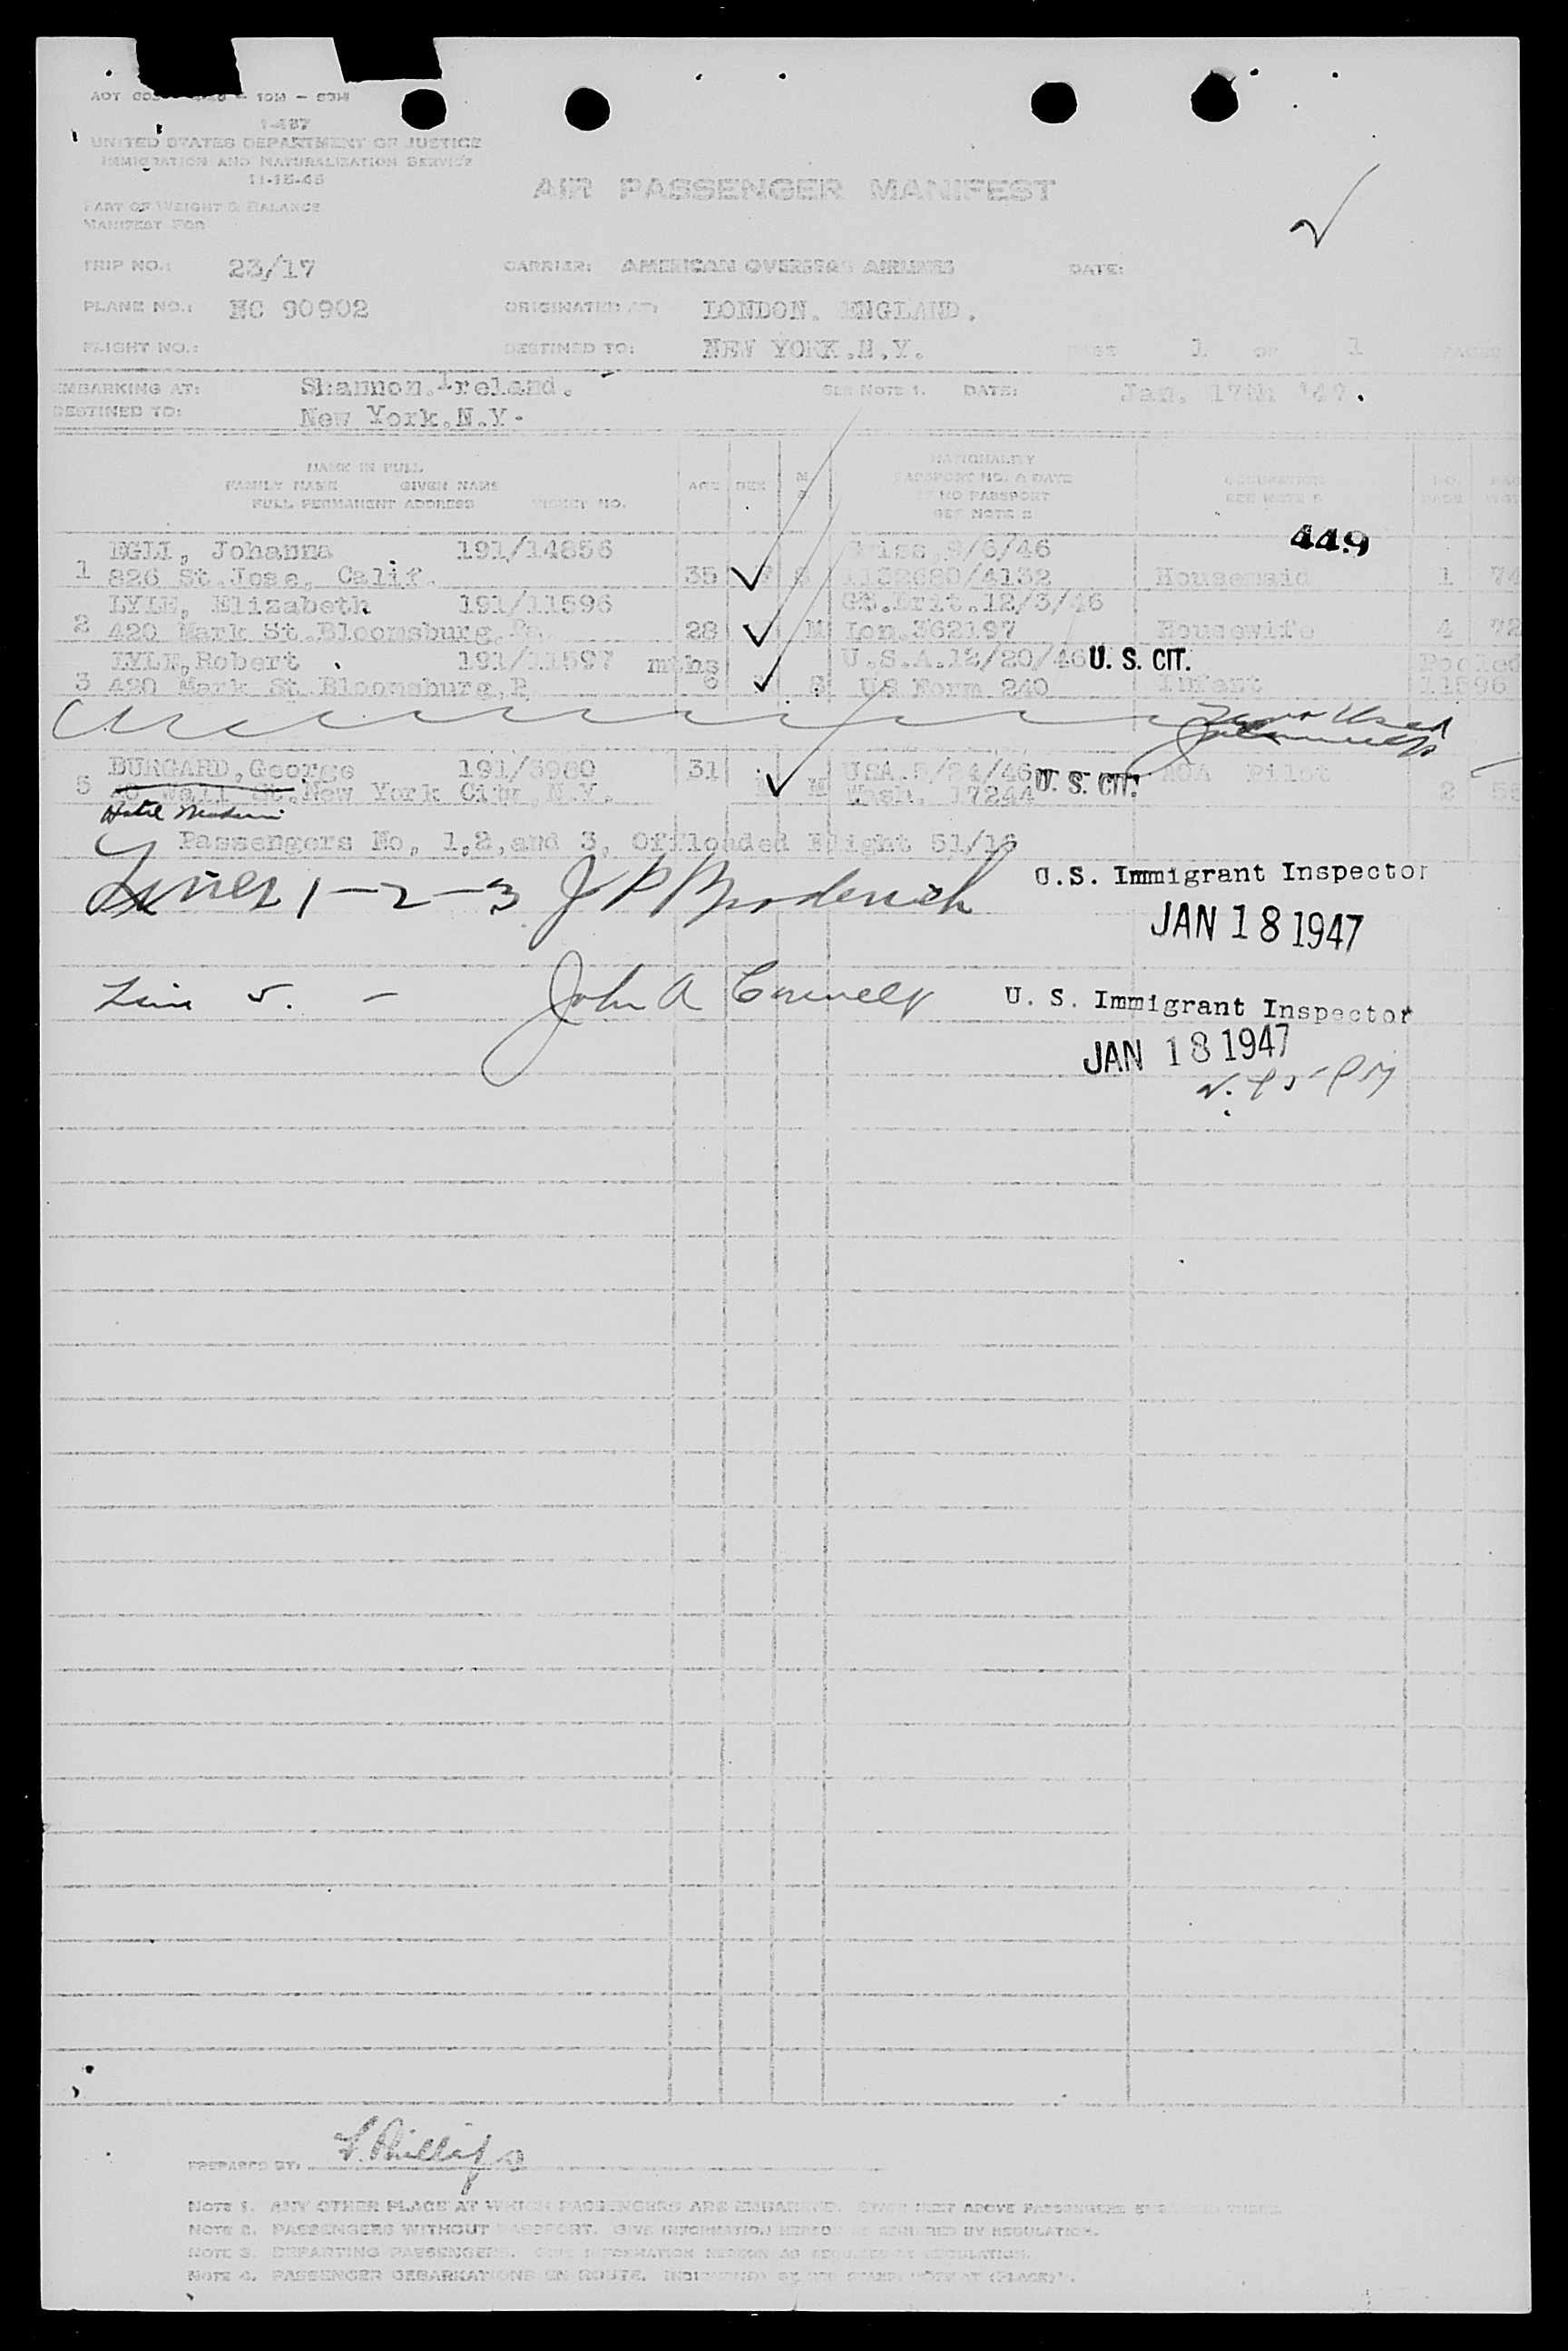 1-487
UNITED STATES DEPARTMENT OF JUSTICE
IMMIGRATION AND NATURALIZATION SERVICE
11-15-45
AIR PASSENGER MANIFEST
PART OF WEIGHT & BALANCE
MANIFEST FOR
TRIP NO.: 23/17 CARRIER: AMERICAN OVERSEAS AIRLINES DATE:
PLANE NO.: NC 90902 ORIGINATED AT: LONDON. ENGLAND.
FLIGHT NO.: DESTINED TO: NEW YORK.N.Y. PAGE 1 OF 1 PAGES
EMBARKING AT: Shannon.Ireland. SEE NOTE 1. DATE: Jan. 17th '47.
DESTINED TO: New York.N.Y.
NAME IN FULL
FAMILY NAME GIVEN NAME
FULL PERMANENT ADDRESS TICKET NO.
AGE SEX M S
NATIONALITY
PASSPORT NO. & DATE
IF NO PASSPORT
SEE NOTE 2
OCCUPATION
449
EGLI, Johanna 191/14856 Swiss.9/6/46
1 826 St.Jose, Calif. 35 S 1132680/4132 Housemaid 1 74
LYLE, Elizabeth 191/11596 GT.Brit.12/3/46
2 420 Mark St.Bloomsburg.Pa 28 M Lon.362197 Housewife 4 72
LYLE,Robert. 191/11597 mths U.S.A.12/20/46 U. S. CIT. Pooled
3 420 Mark St.Bloomsburg.P 6 S US Form 240 Infant 11596
BURGARD,George 191/3980 31 USA. U. S. CIT. AOA Pilot
5 Wall St.New York City.N.Y. M Wash. 17244 2
Hotel
Passengers No, 1,2,and 3, Offloaded Flight 51/16
Lines 1-2-3 J P Broderick U.S. Immigrant Inspector
JAN 18 1947
Line 5. - John A U. S. Immigrant Inspector
JAN 18 1947
PREPARED BY: Phillips
NOTE 1. ANY OTHER PLACE AT WHICH PASSENGERS ARE EMBARKED.
NOTE 2. PASSENGERS WITHOUT PASSPORT. GIVE INFORMATION HEREON AS REQUIRED BY REGULATION.
NOTE 3. DEPARTING PASSENGERS. GIVE INFORMATION HEREON AS REQUIRED BY REGULATION.
NOTE 4. PASSENGER DEBARKATIONS EN ROUTE.